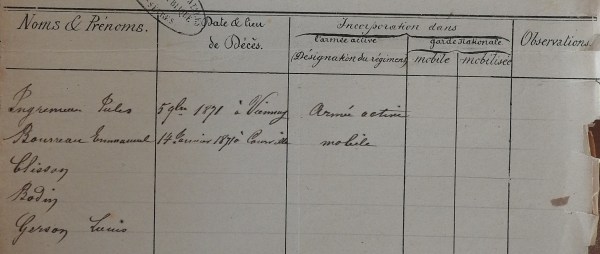 Noms & Prénoms. Date & lieu de Décès. Incorporation dans Observations.
l'armée active garde nationale
(Désignation du régiment) mobile mobilisée
Jules 5 9bre 1871 à Armée active
Bourreau Emmanuel 14 Janvier 1871 à mobile
Clisson
Bodin
Gerson Louis